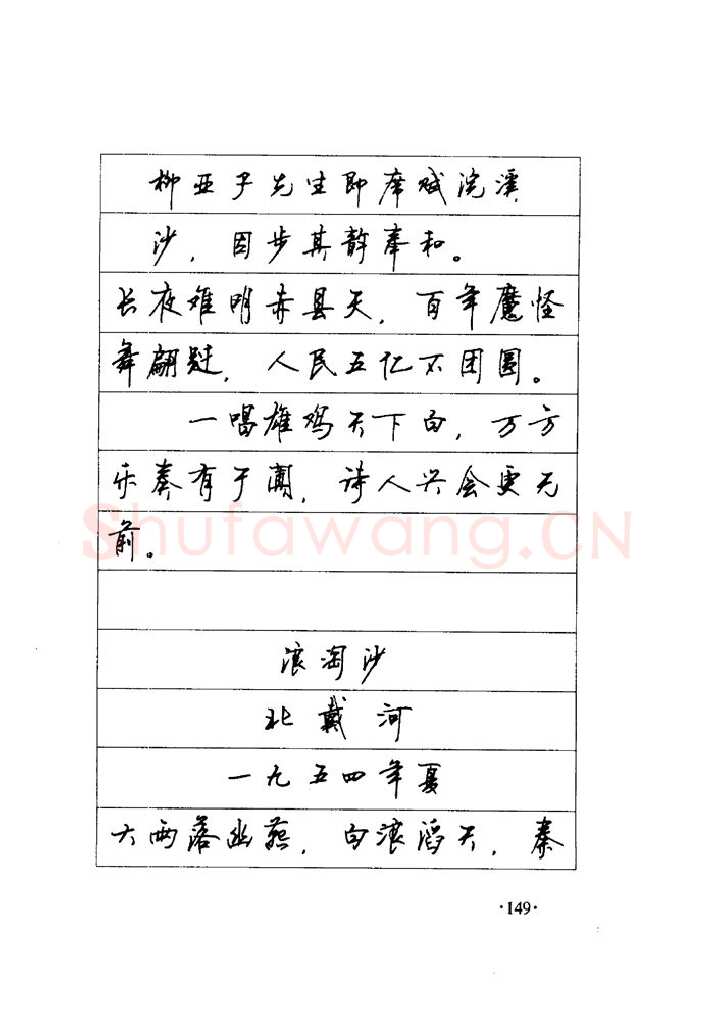 柳亚子先生即席赋浣溪
沙，因步其韵奉和。
长夜难明赤县天，百年魔怪
舞翩跹，人民五亿不团圆。
一唱雄鸡天下白，万方
乐奏有于阗，诗人兴会更无
前。
Shufawang.CN
浪淘沙
北戴河
一九五四年夏
大雨落幽燕，白浪滔天，秦
·149·